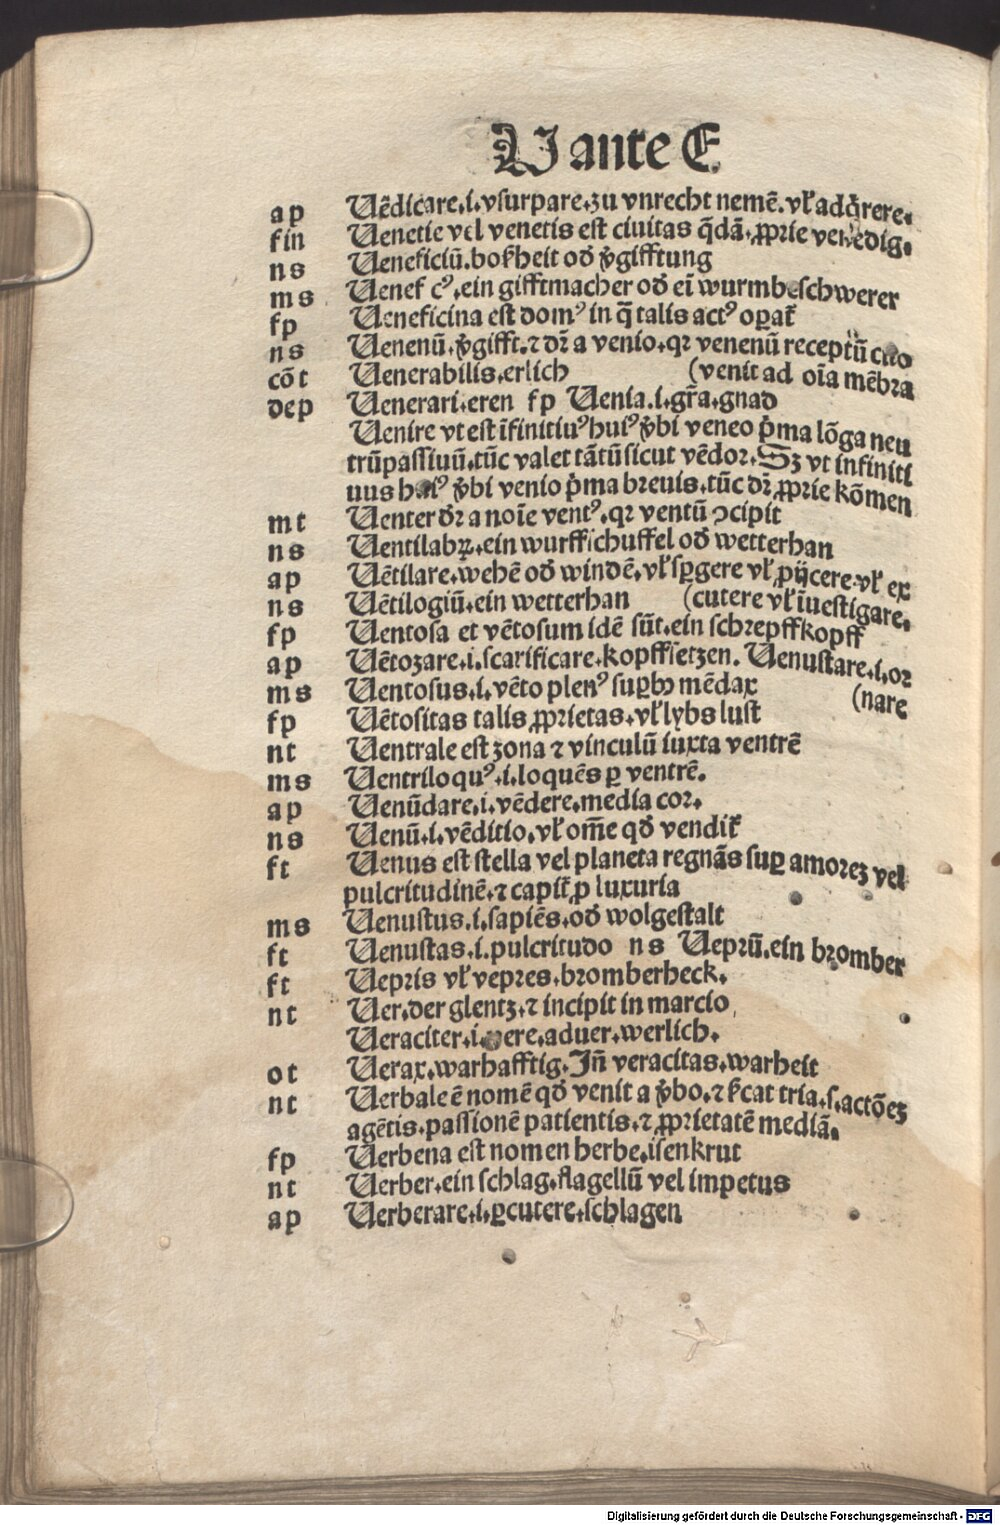 V ante E
ap Uēdicare.i.vsurpare.zu vnrecht nemē.vł adq̄rere.
fin Uenetie vel venetis est ciuitas q̄dā.ꝓprie venedig.
ns Ueneficiū.boßheit od' v̓gifftung
ms Uenefic⁹.ein gifftmacher od' eī wurmbeschwerer
fp Ueneficina est dom⁹ in q̄ talis act⁹ oꝑat̄
ns Uenenū.v̓gifft.⁊ dr̄ a venio.qꝛ venenū receptū cito
cōt Uenerabilis.erlich (venit ad oīa mēbra
dep Uenerari.eren fp Uenia.i.gr̄a.gnad
Uenire vt est īfinitiu⁹ hui⁹ v̓bi veneo p̄ma lōga neu
trūpassiuū.tūc valet tātū sicut vēdoꝛ.Sꝫ vt infiniti
uus hui⁹ v̓bi venio p̄ma breuis.tūc dr̄ ꝓprie kōmen
mt Uenter dr̄ a noīe vent⁹.qꝛ ventū ↄcipit
ns Uentilabꝝ.ein wurffschuffel od' wetterhan
ap Uētilare.wehē od' windē.vł spꝑgere vł ꝓijcere.vł ex
ns Uētilogiū.ein wetterhan (cutere vł īuestigare.
fp Uentosa et vētosum idē sūt.ein schrepffkopff
ap Uētoꝛare.i.scarificare.kopffsetzen. Uenustare.i.oꝛ
ms Uentosus.i.vēto plen⁹ suꝑb⁹ mēdax (nare
fp Uētositas talis ꝓprietas.vł lybs lust
nt Uentrale est zona ⁊ vinculū iuxta ventrē
ms Uentriloqu⁹.i.loquēs ꝑ ventrē.
ap Uenūdare.i.vēdere.media coꝛ.
ns Uenū.i.vēditio.vł om̄e qd' vendit̄
ft Uenus est stella vel planeta regnās suꝑ amoꝛeꝫ vel
pulcritudinē.⁊ capit̄ ꝓ luxuria
ms Uenustus.i.sapiēs.od' wolgestalt
ft Uenustas.i.pulcritudo ns Uepꝛū.ein bꝛomber
ft Uepꝛis vł vepres.bromberheck.
nt Uer.der glentz.⁊ incipit in marcio
Ueraciter.i.vere.aduer.werlich.
ot Uerax.warhafftig.Jn̄ veracitas.warheit
nt Uerbale ē nomē qd' venit a v̓bo.⁊ s̓cat tria.s.actōeꝫ
agētis.passionē patientis.⁊ ꝓprietatē mediā.
fp Uerbena est nomen herbe.isenkrut
nt Uerber.ein schlag.flagellū vel impetus
ap Uerberare.i.ꝑcutere.schlagen
Digitalisierung gefördert durch die Deutsche Forschungsgemeinschaft - DFG